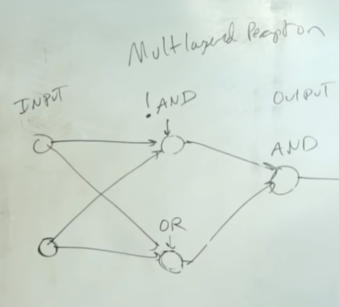 Multlayerd Peceptron
INPUT
!AND
OUtPUT
AND
OR